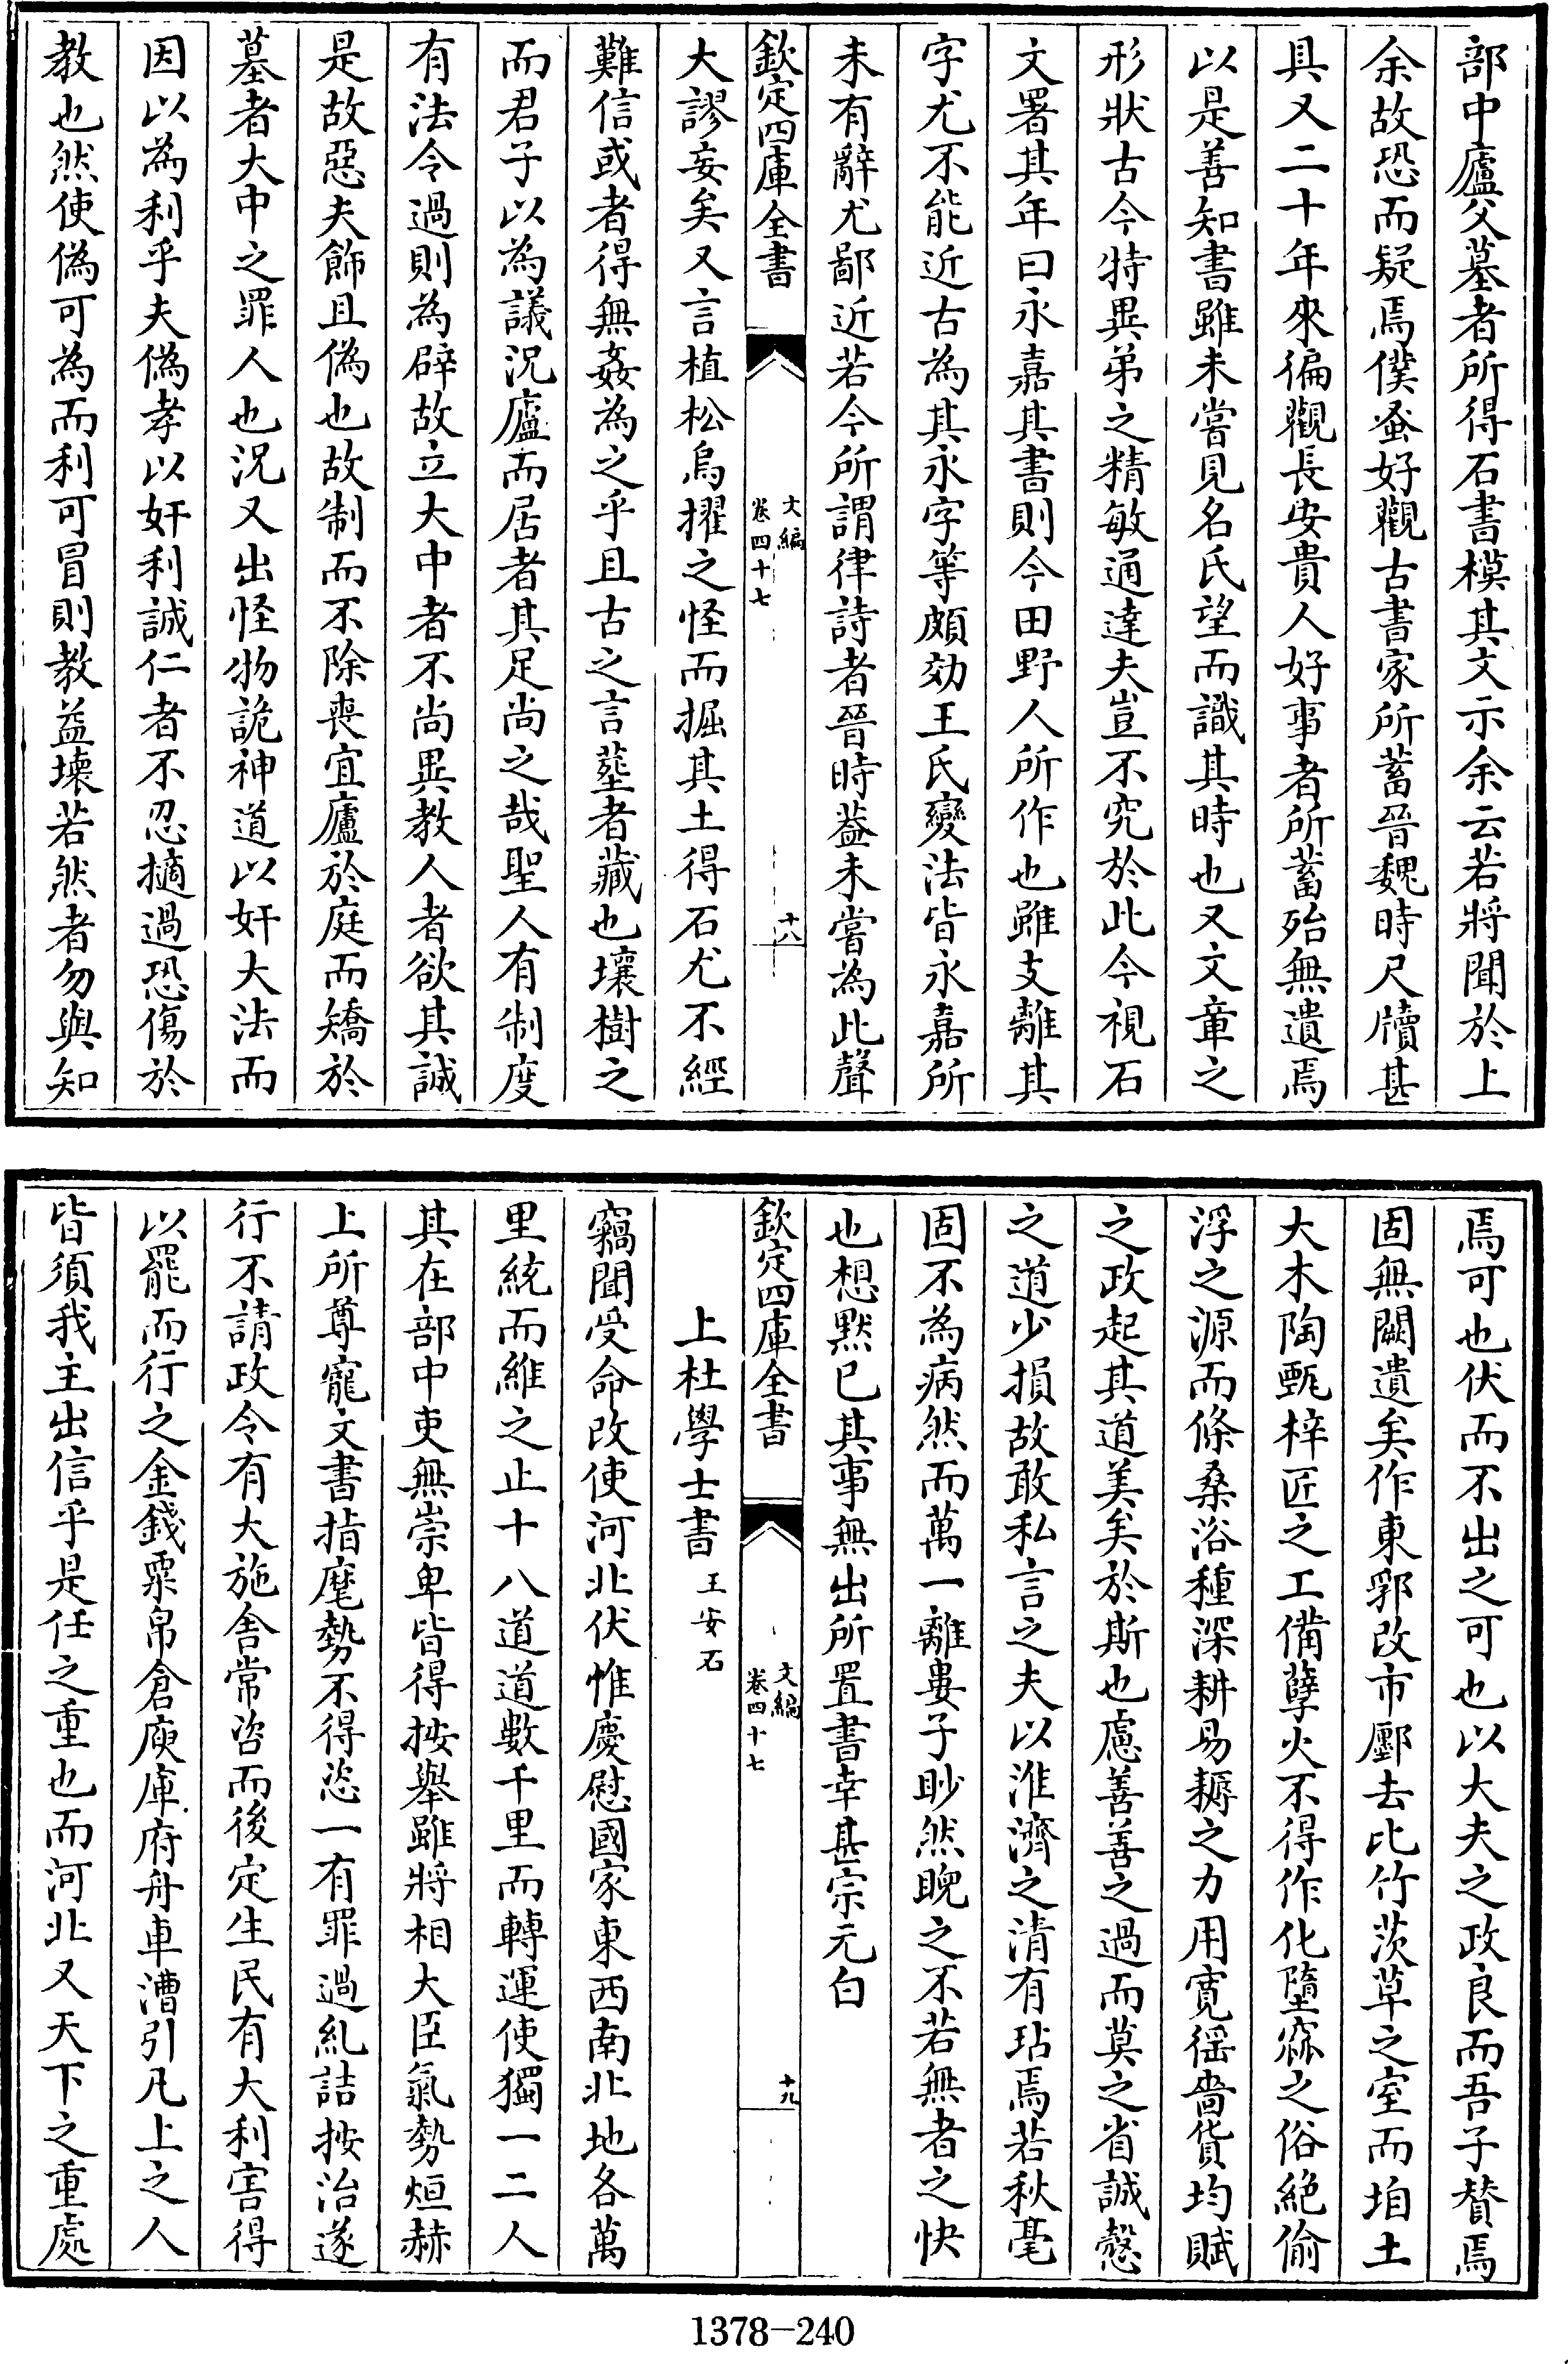 部中廬父墓者所得石書模其文示余云若將聞於上
余故恐而疑焉僕蚤好觀古書家所蓄晉魏時尺牘甚
具又二十年來徧觀長安貴人好事者所蓄殆無遺焉
以是善知書雖未嘗見名氏望而識其時也又文章之
形狀古今特異弟之精敏通達夫豈不究於此今視石
文署其年曰永嘉其書則今田野人所作也雖支離其
字尤不能近古為其永字等頗効王氏變法皆永嘉所
未有辭尤鄙近若今所謂律詩者晉時葢未嘗為此聲
欽定四庫全書
文編
卷四十七
十八
大謬妄矣又言植松烏擢之怪而掘其土得石尤不經
難信或者得無姦為之乎且古之言塟者藏也壤樹之
而君子以為議況廬而居者其足尚之哉聖人有制度
有法令過則為辟故立大中者不尚異教人者欲其誠
是故惡夫飾且偽也故制而不除喪宜廬於庭而矯於
墓者大中之罪人也況又出怪物詭神道以奸大法而
因以為利乎夫偽孝以奸利誠仁者不忍擿過恐傷於
教也然使偽可為而利可冒則教益壞若然者勿與知
焉可也伏而不出之可也以大夫之政良而吾子贊焉
固無闕遺矣作東郛改市鄽去比竹茨草之室而垍土
大木陶甄梓匠之工備孽火不得作化墮窳之俗絶偷
浮之源而條桑浴種深耕易耨之力用寛徭嗇貨均賦
之政起其道美矣於斯也慮善善之過而莫之省誠慤
之道少損故敢私言之夫以淮濟之清有玷焉若秋毫
固不為病然而萬一離婁子眇然睨之不若無者之快
也想默已其事無出所置書幸甚宗元白
欽定四庫全書
文編
卷四十七
十九
上杜學士書 王安石
竊聞受命改使河北伏惟慶慰國家東西南北地各萬
里統而維之止十八道道數千里而轉運使獨一二人
其在部中吏無崇卑皆得按舉雖將相大臣氣勢烜赫
上所尊寵文書指麾勢不得恣一有罪過糺詰按治遂
行不請政令有大施舍常咨而後定生民有大利害得
以罷而行之金錢粟帛倉庾庫府舟車漕引凡上之人
皆須我主出信乎是任之重也而河北又天下之重處
1378-240